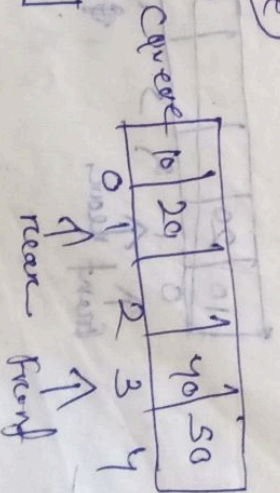 Cqueue
10 20 40 50
0 1 2 3 4
rear front